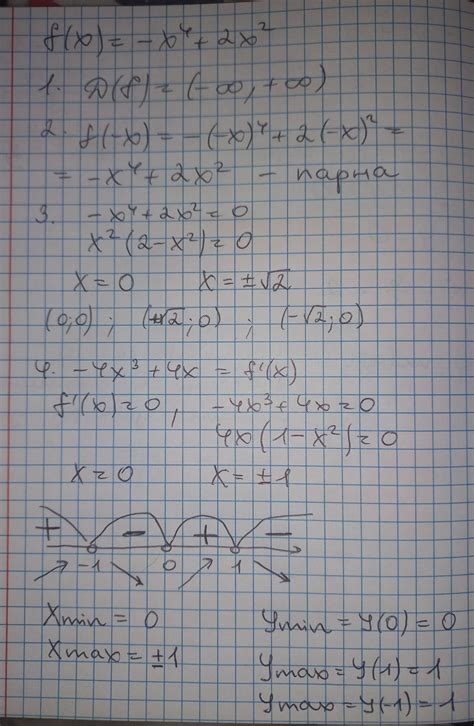 f(x) = -x⁴ + 2x²
1. D(f) = (-∞, +∞)
2. f(-x) = -(-x)⁴ + 2(-x)² =
= -x⁴ + 2x² - парна
3. -x⁴ + 2x² = 0
x²(2-x²) = 0
x = 0 x = ±√2
(0;0) ; (√2;0) ; (-√2;0)
4. -4x³ + 4x = f'(x)
f'(x) = 0, -4x³ + 4x = 0
4x(1-x²) = 0
x = 0 x = ±1
+ - + -
-1 0 1
Xmin = 0 Ymin = Y(0) = 0
Xmax = ±1 Ymax = Y(1) = 1
Ymax = Y(-1) = 1